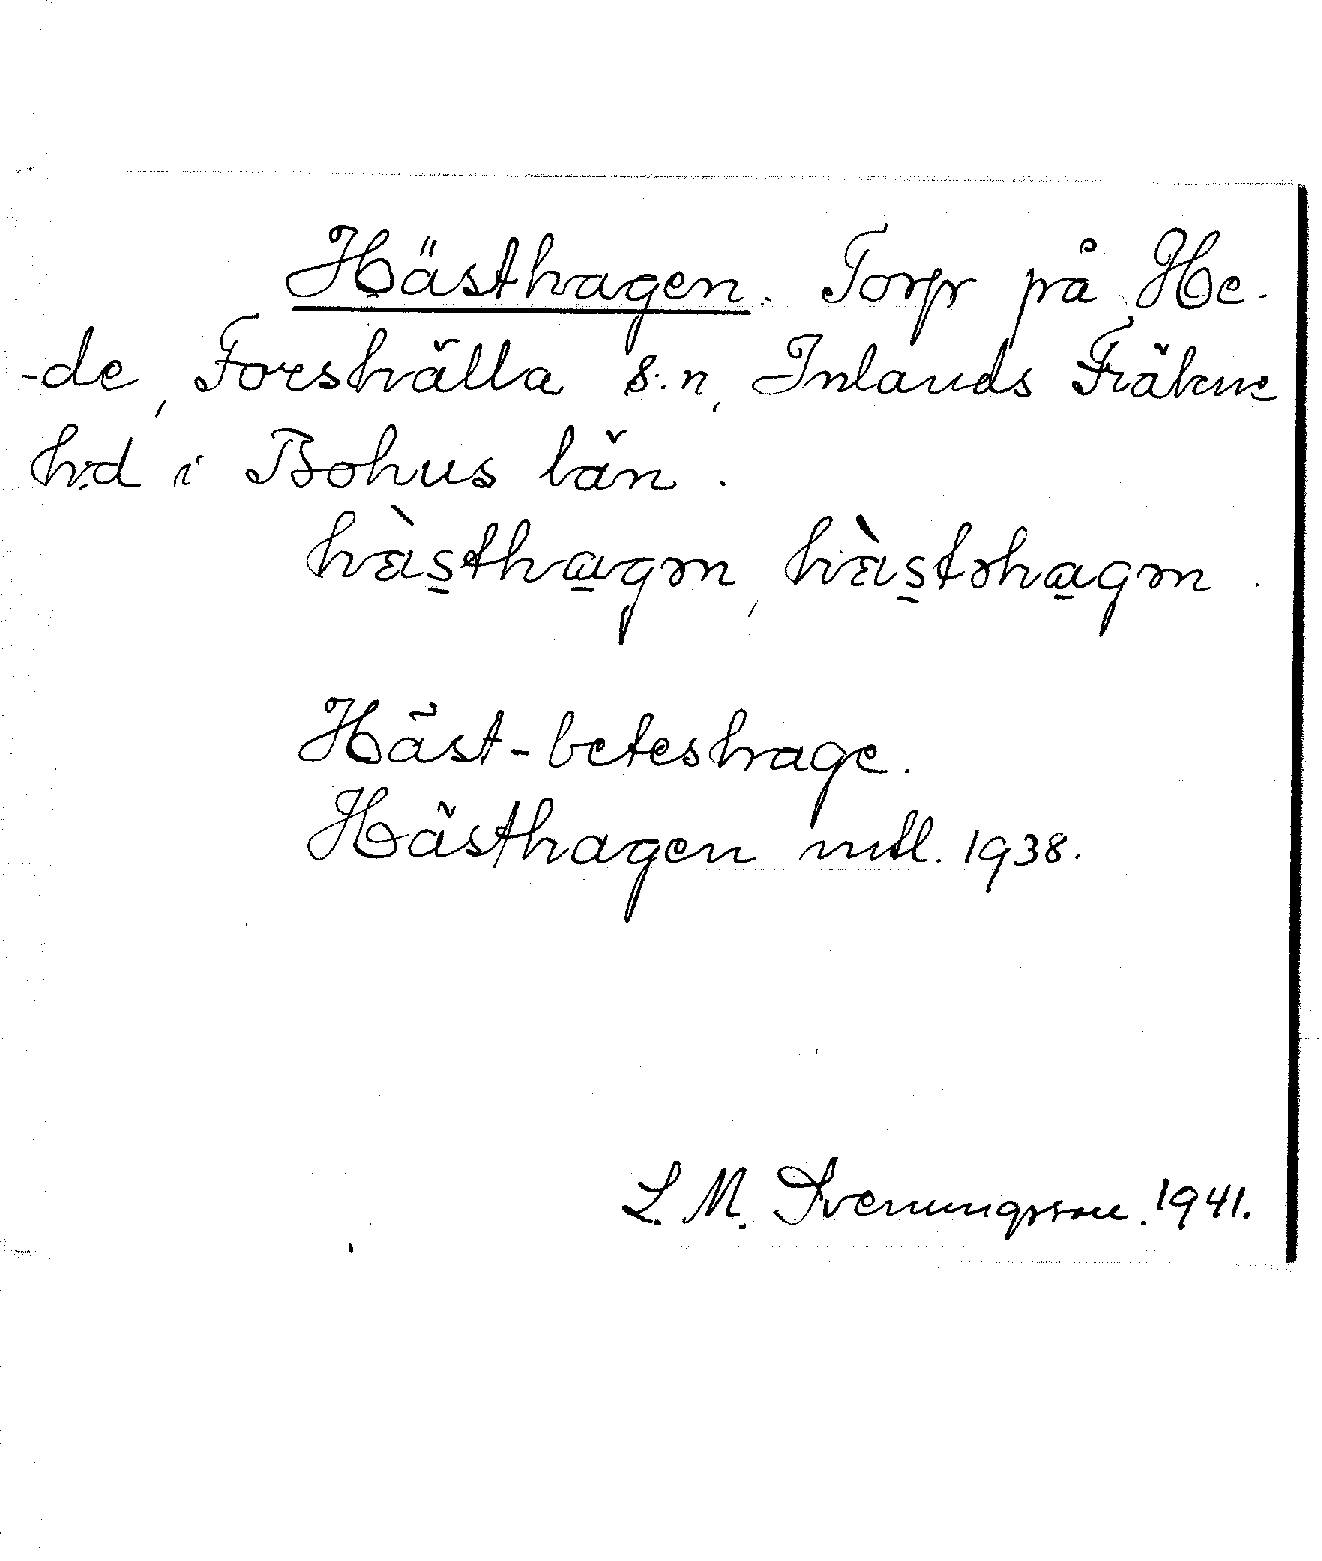 Hästhagen. Torp på He-
-de, Forshälla s:n, Inlands Fräkne
h:d i Bohus län.
hàs̱tha̱gən, hàs̱təha̱gən.
Häst-beteshage.
Hästhagen mtl. 1938.
L. M. Svenungsson. 1941.